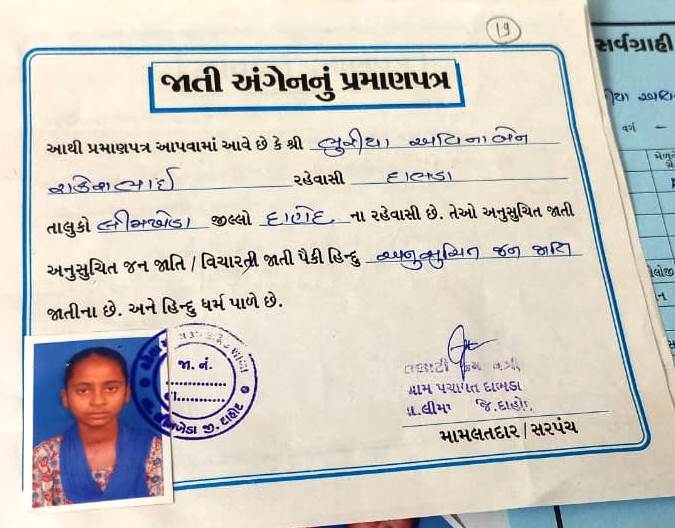 19
જાતી અંગેનનું પ્રમાણપત્ર
આથી પ્રમાણપત્ર આપવામાં આવે છે કે શ્રી ભુરીયા અવિનાબેન
રાકેશભાઈ રહેવાસી દાભડા
તાલુકો લીમખેડા જીલ્લો દાહોદ ના રહેવાસી છે. તેઓ અનુસુચિત જાતી
અનુસુચિત જન જાતિ / વિચારતી જાતી પૈકી હિન્દુ અનુસુચિત જન જાતિ
જાતીના છે. અને હિન્દુ ધર્મ પાળે છે.
જા. નં.
જી. દાહોદ
તલાટી કમ મંત્રી
ગ્રામ પંચાયત દાભડા
જિ. દાહોદ
મામલતદાર / સરપંચ
સર્વગ્રાહી
વર્ગ –